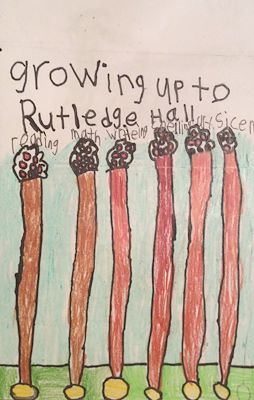 growing up to
Rutledge Hall
reading math writeing spelling art Sicen